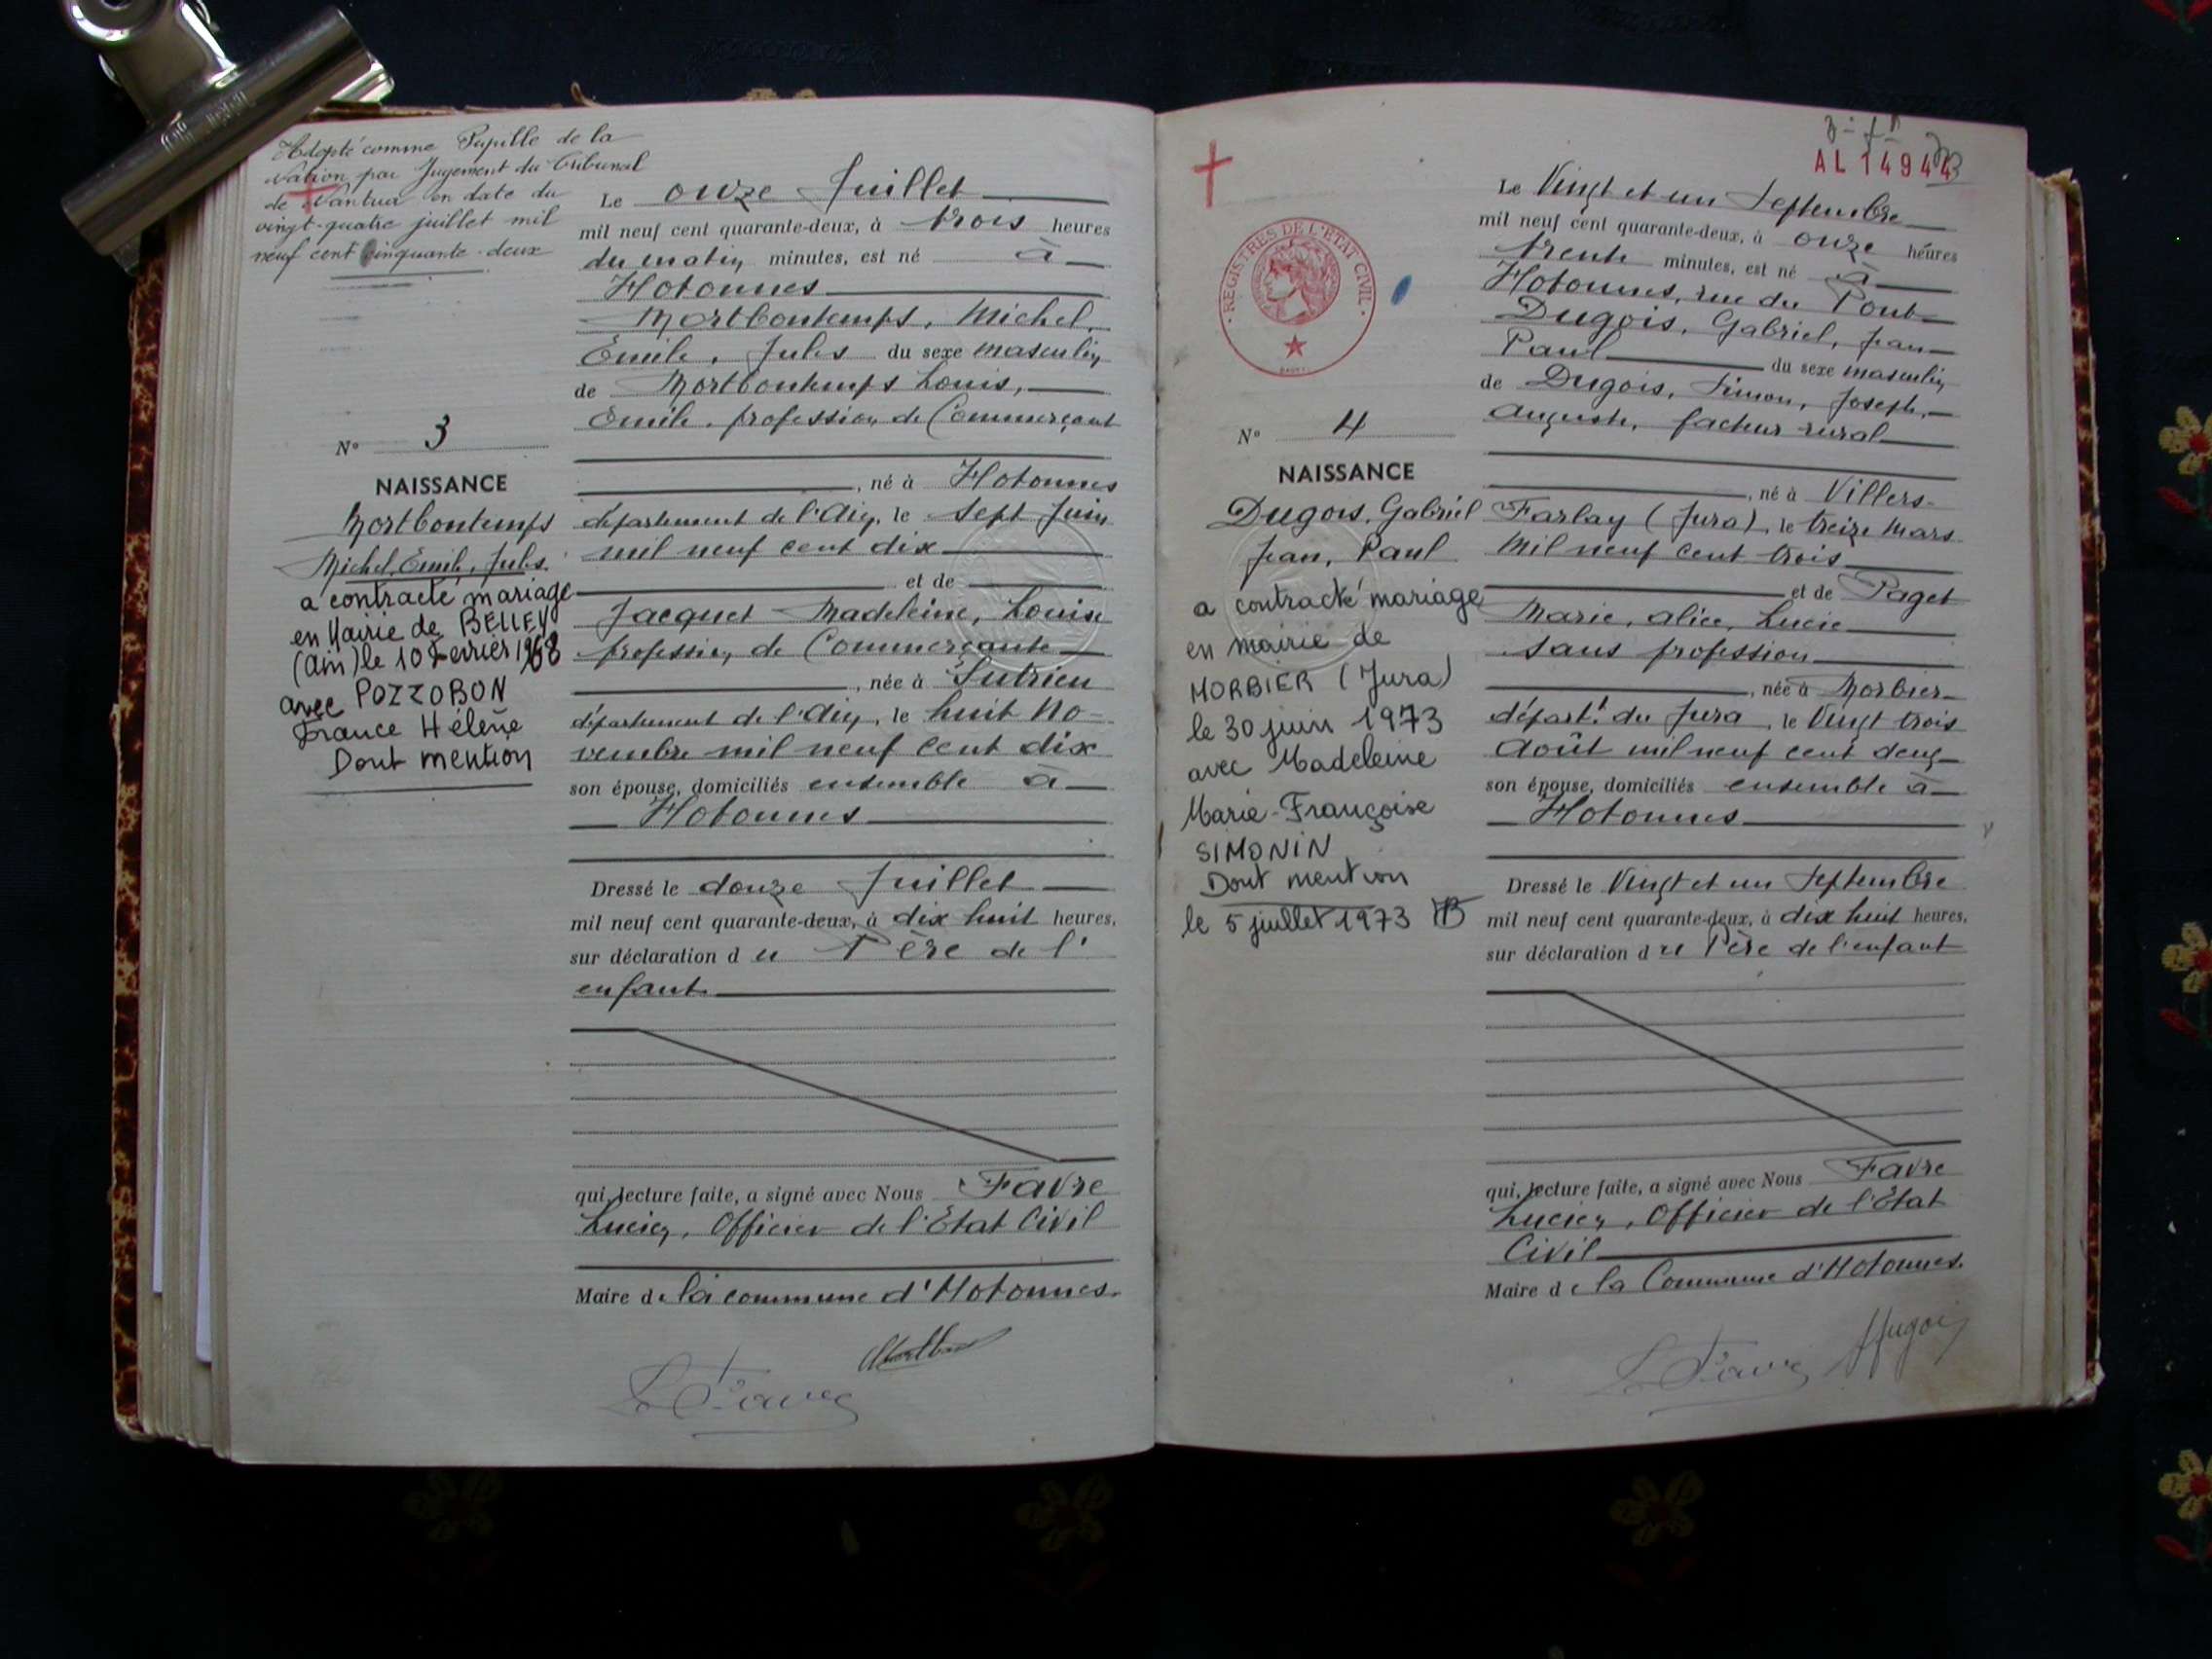 Adopté comme Pupille de la
Nation par Jugement du Tribunal
de Nantua en date du
vingt-quatre juillet mil
neuf cent cinquante-deux
N° 3
NAISSANCE
Mortbontemps
Michel, Emile, Jules.
a contracté mariage
en Mairie de BELLEY
(Ain) le 10 Février 1968
avec POZZOBON
France Hélène
Dont mention
Le onze Juillet
mil neuf cent quarante-deux, à trois heures
du matin minutes, est né à
Hotonnes
Mortbontemps, Michel,
Emile, Jules du sexe masculin
de Mortbontemps Louis,
Emile, profession de Commerçant
, né à Hotonnes
département de l'Ain, le sept Juin
mil neuf cent dix
et de
Jacquet Madeleine, Louise
profession de Commerçante
, née à Sutrieu
département de l'Ain, le huit No-
vembre mil neuf cent dix
son épouse, domiciliés ensemble à
Hotonnes
Dressé le douze Juillet
mil neuf cent quarante-deux, à dix huit heures,
sur déclaration du Père de l'
enfant
qui, lecture faite, a signé avec Nous Favre
Lucien, Officier de l'Etat Civil
Maire de la commune d'Hotonnes.
L. Favre
AL 14944
REGISTRES DE L'ETAT CIVIL
N° 4
NAISSANCE
Dugois, Gabriel
Jean, Paul
a contracté mariage
en mairie de
MORBIER (Jura)
le 30 juin 1973
avec Madeleine
Marie-Françoise
SIMONIN
Dont mention
le 5 juillet 1973
Le Vingt et un Septembre
mil neuf cent quarante-deux, à onze heures
trente minutes, est né à
Hotonnes, rue du Pont
Dugois, Gabriel, Jean
Paul du sexe masculin
de Dugois, Simon, Joseph,
Auguste, facteur rural
, né à Villers-
Farlay (Jura), le treize Mars
mil neuf cent trois
et de Paget
Marie, Alice, Lucie
sans profession
, née à Morbier
départt du Jura, le Vingt trois
Août mil neuf cent deux
son épouse, domiciliés ensemble à
Hotonnes
Dressé le Vingt et un Septembre
mil neuf cent quarante-deux, à dix huit heures,
sur déclaration du Père de l'enfant
qui, lecture faite, a signé avec Nous Favre
Lucien, Officier de l'Etat
Civil
Maire de la Commune d'Hotonnes.
L. Favre Dugois